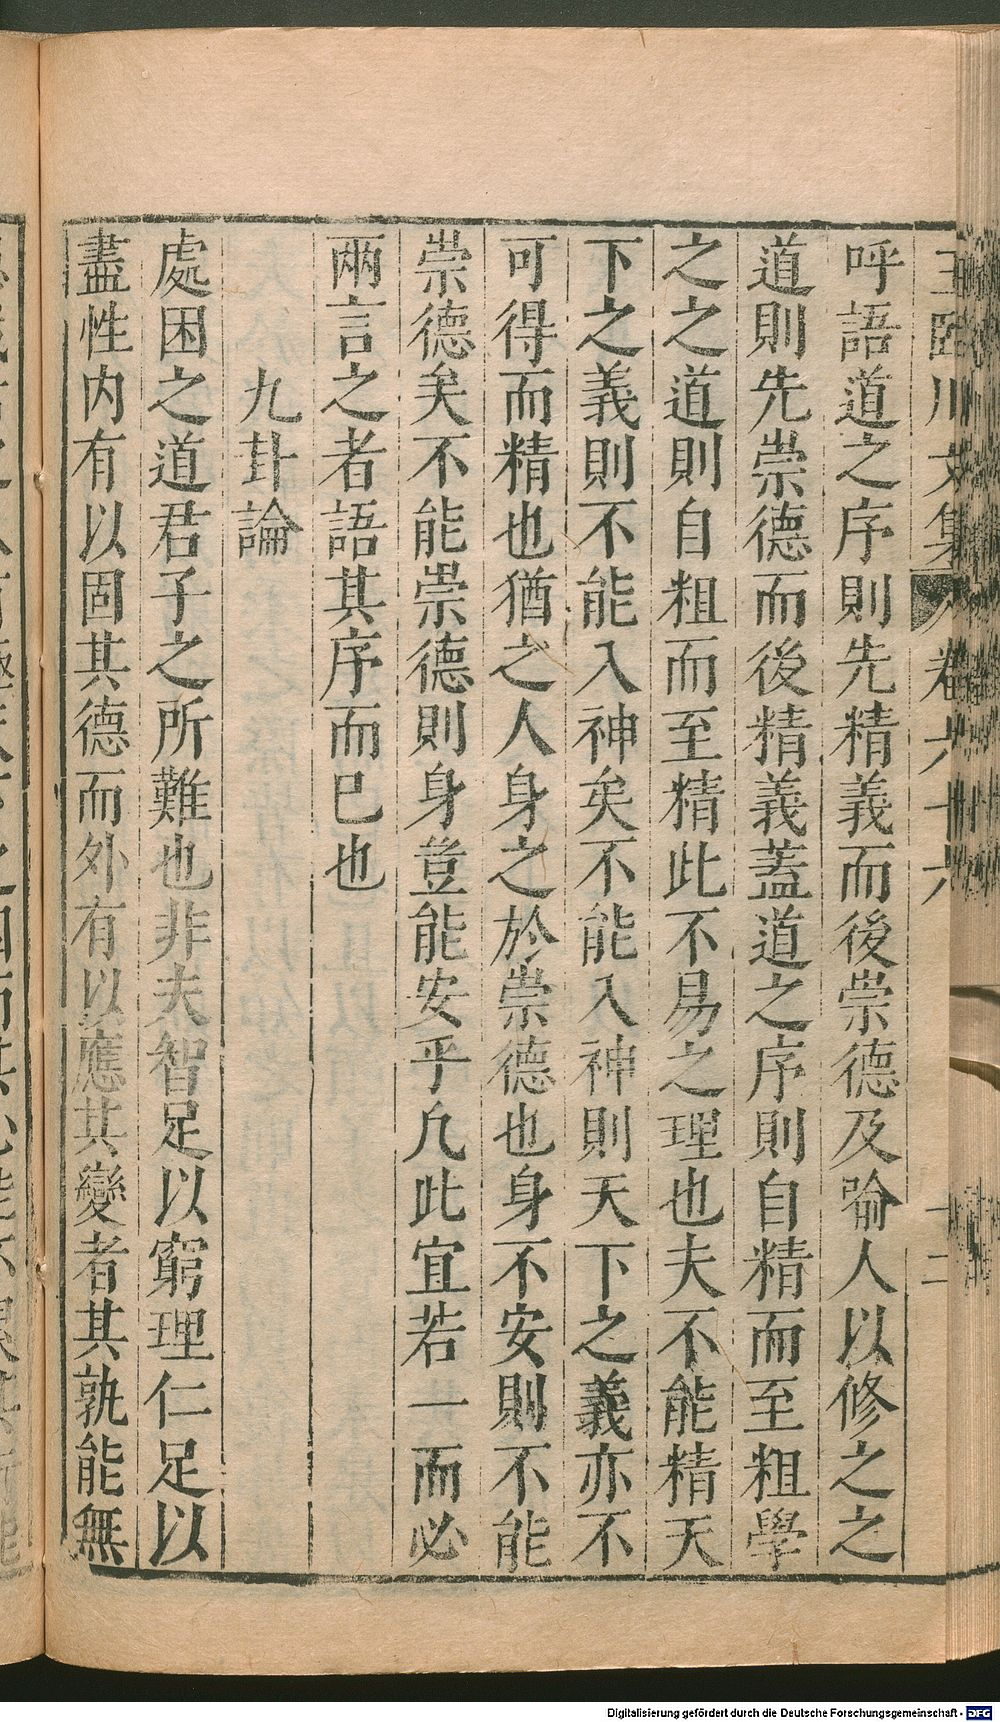 王臨川文集 卷六十六 十二
呼語道之序則先精義而後崇德及喻人以修之之
道則先崇德而後精義蓋道之序則自精而至粗學
之之道則自粗而至精此不易之理也夫不能精天
下之義則不能入神矣不能入神則天下之義亦不
可得而精也猶之人身之於崇德也身不安則不能
崇德矣不能崇德則身豈能安乎凡此宜若一而必
兩言之者語其序而已也
九卦論
處困之道君子之所難也非夫智足以窮理仁足以
盡性内有以固其德而外有以應其變者其孰能無
Digitalisierung gefördert durch die Deutsche Forschungsgemeinschaft - DFG